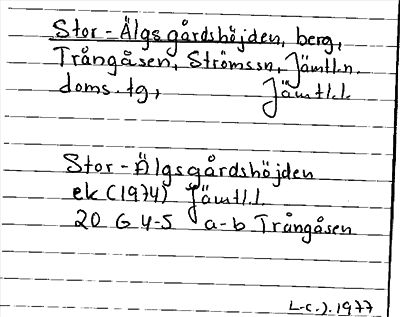 Stor-Älgsgårdshöjden, berg,
Trångåsen, Strömssn, Jämtl.n.
doms.tg, Jämtl.l.
Stor-Älgsgårdshöjden
ek (1974) Jämtl.l.
20 G 4-5 a-b Trångåsen
L-C.J. 1977